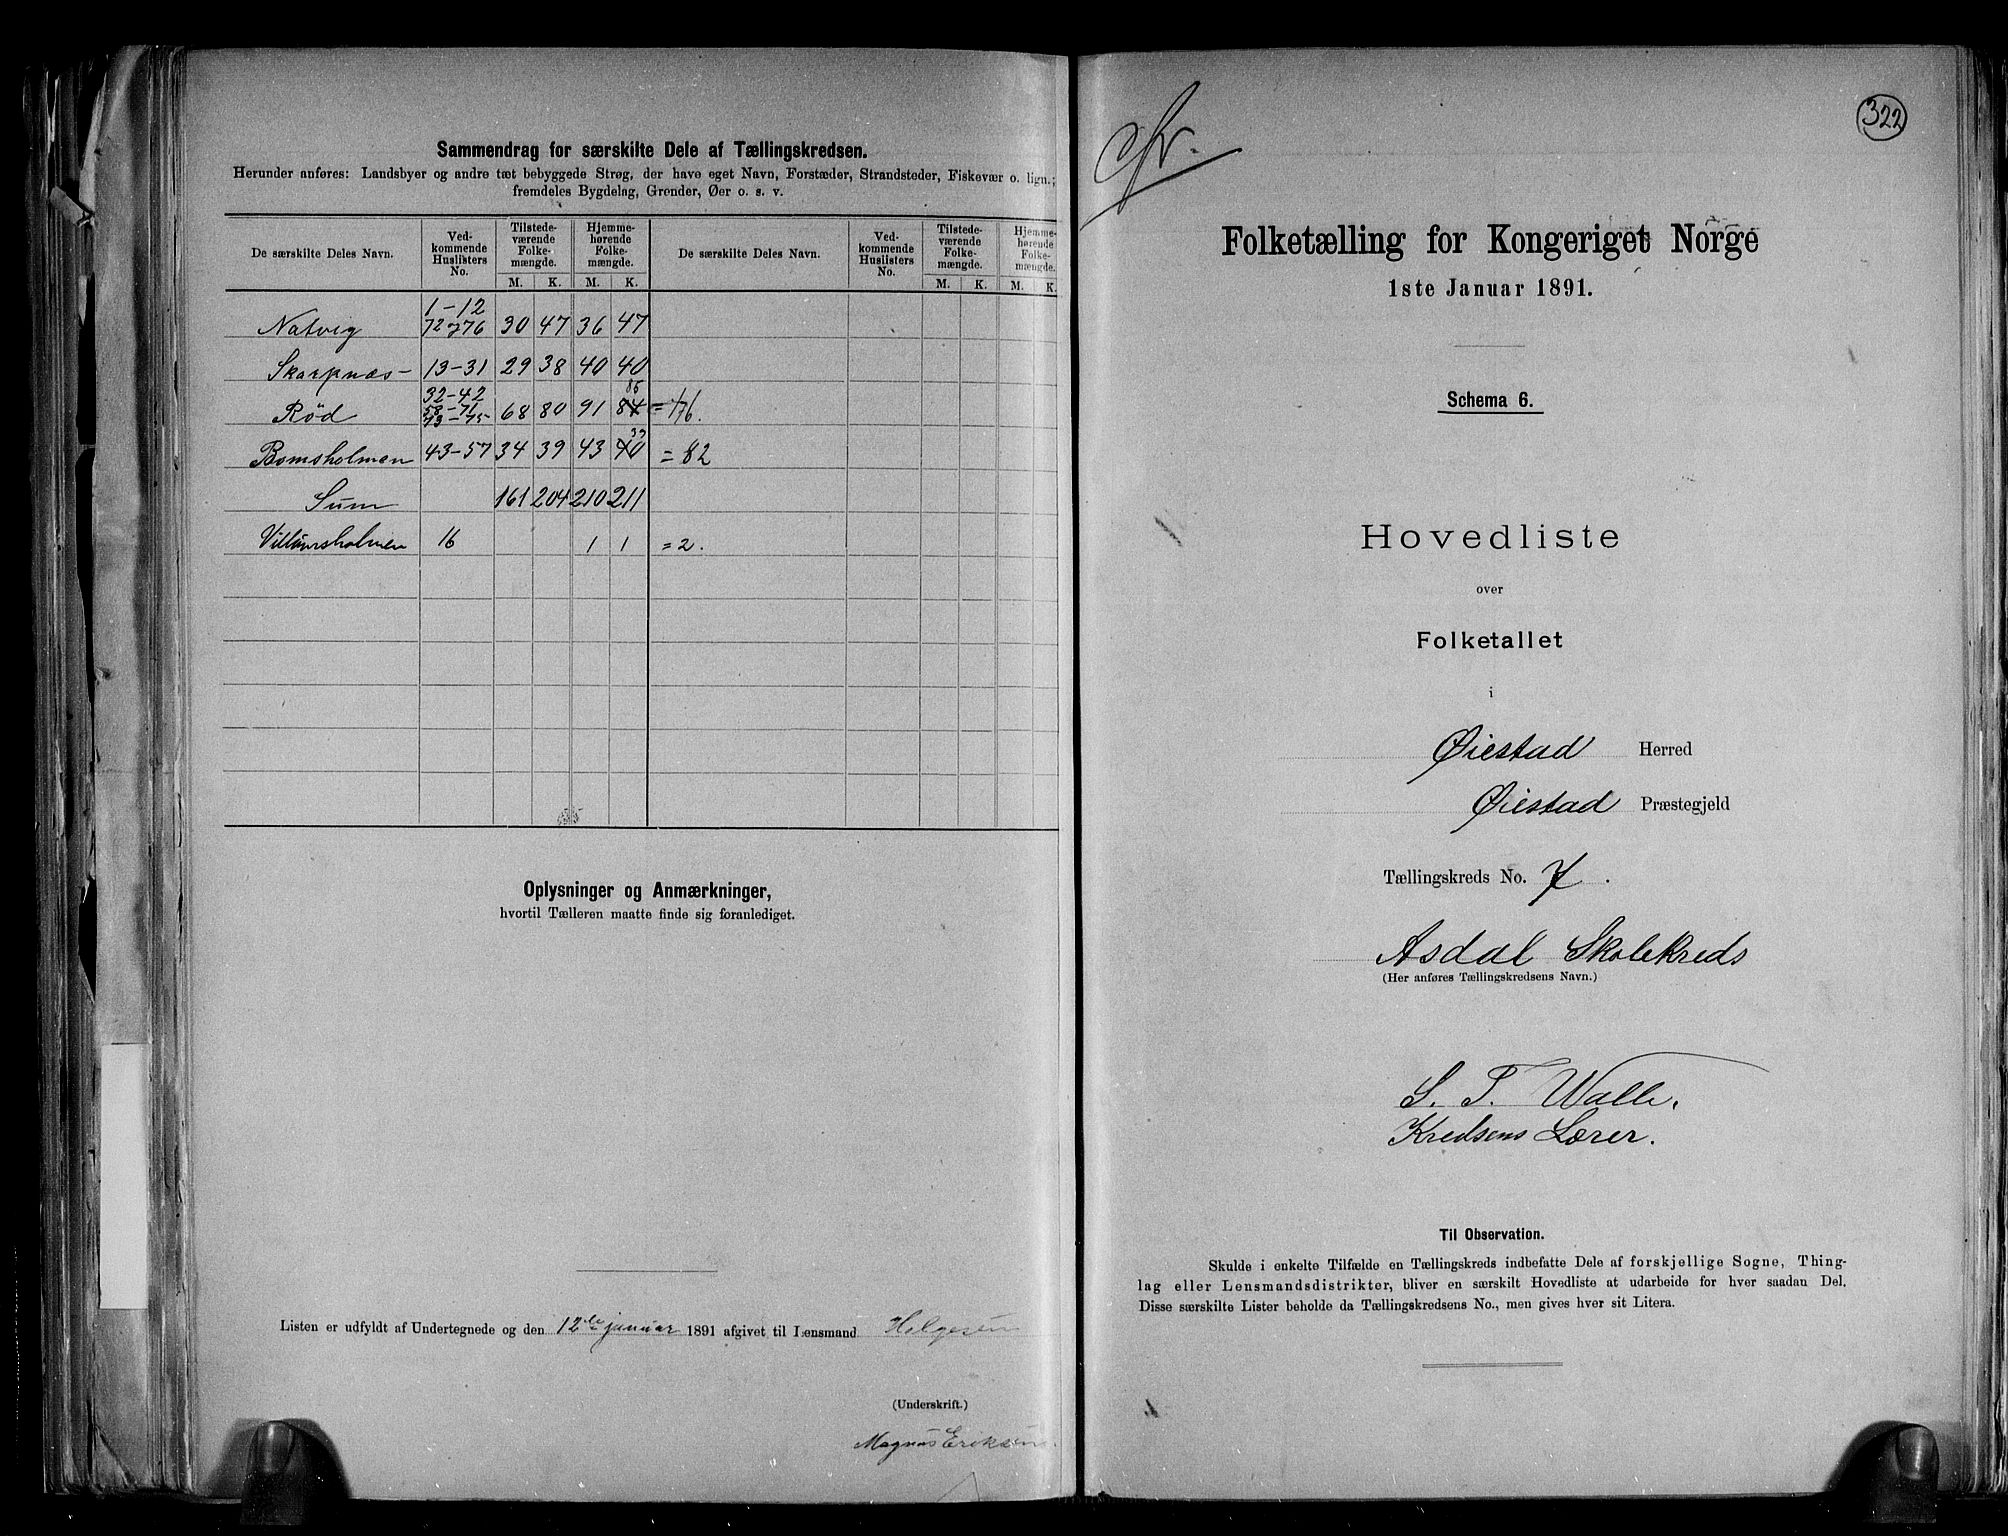 Sammendrag for særskilte Dele af Tællingskredsen.
Herunder anføres: Landsbyer og andre tæt bebyggede Strøg, der have eget Navn, Forstæder, Strandsteder, Fiskevær o. lign.;
fremdeles Bygdelag, Grender, Øer o. s. v.
De særskilte Deles Navn. Ved-kommende Huslisters No. Tilstede-værende Folke-mængde. Hjemme-hørende Folke-mængde. De særskilte Deles Navn. Ved-kommende Huslisters No. Tilstede-værende Folke-mængde. Hjemme-hørende Folke-mængde.
M. K. M. K. M. K. M. K.
1-12
Natvig 72-76 30 47 36 47
Skarpnæs 13-31 29 38 40 40
32-42 85
58-71
Rød 73-75 68 80 91 84 = 176.
39
Bomsholmen 43-57 34 39 43 40 = 82
Sum 161 204 210 211
Villumsholmen 16 1 1 = 2.
Oplysninger og Anmærkninger,
hvortil Tælleren maatte finde sig foranlediget.
Listen er udfyldt af Undertegnede og den 12te januar 1891 afgivet til Lensmand Helgesen
(Underskrift.)
Magnus Eriksen
322
Folketælling for Kongeriget Norge
1ste Januar 1891.
Schema 6.
Hovedliste
over
Folketallet
i
Øiestad Herred
Øiestad Præstegjeld
Tællingskreds No. 7.
Asdal Skolekreds
(Her anføres Tællingskredsens Navn.)
S. T. Walle.
Kredsens Lærer.
Til Observation.
Skulde i enkelte Tilfælde en Tællingskreds indbefatte Dele af forskjellige Sogne, Thing-
lag eller Lensmandsdistrikter, bliver en særskilt Hovedliste at udarbeide for hver saadan Del.
Disse særskilte Lister beholde da Tællingskredsens No., men gives hver sit Litera.